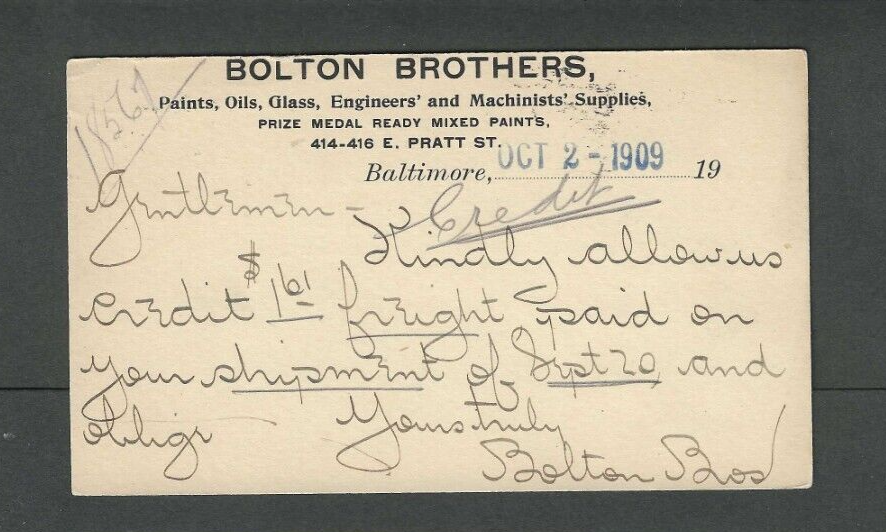 BOLTON BROTHERS,
Paints, Oils, Glass, Engineers' and Machinists' Supplies,
PRIZE MEDAL READY MIXED PAINTS,
414-416 E. PRATT ST.
Baltimore, OCT 2 - 1909 19
18567
Credit
Gentlemen -
Kindly allow us
credit $1 61 freight paid on
your shipment of Sept 20, and
oblige Yours truly
Bolton Bros